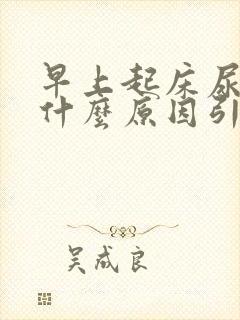 早上起床尿
什麼原因引
吴成良